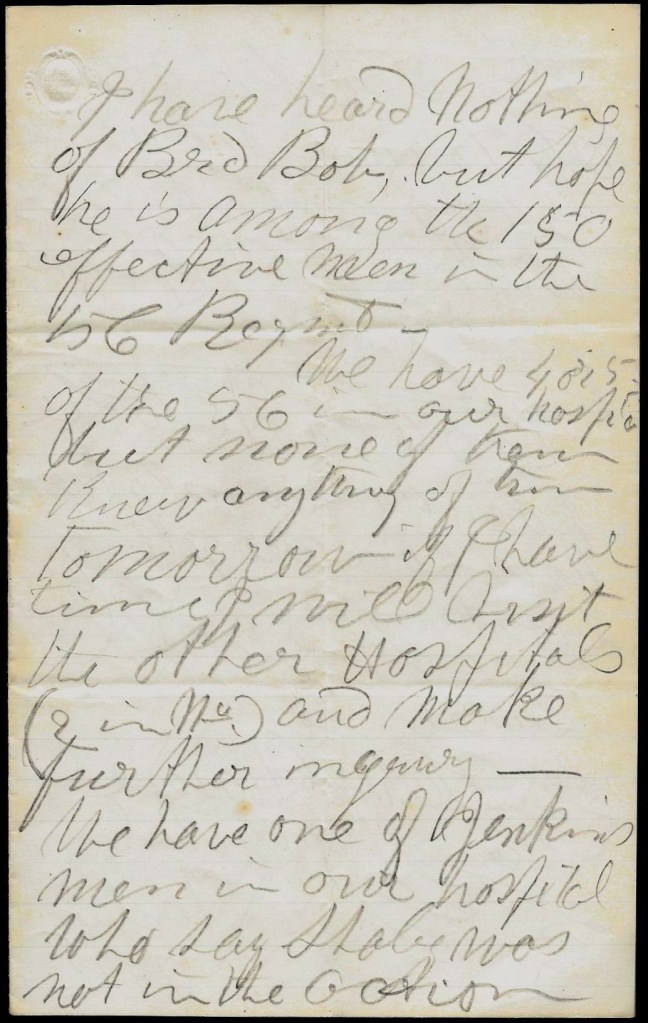 I have heard Nothing
of Bro Bob, but hope
he is among the 150
effective men in the
56 Regmt
We have 4 or 5
of the 56 in our hospital
but none of them
knew anything of him
Tomorrow if I have
time I will visit
the other Hospitals
(2 in No.) and make
further inquiry —
We have one of Jenkins
men in our hospital
who say was
not in the action